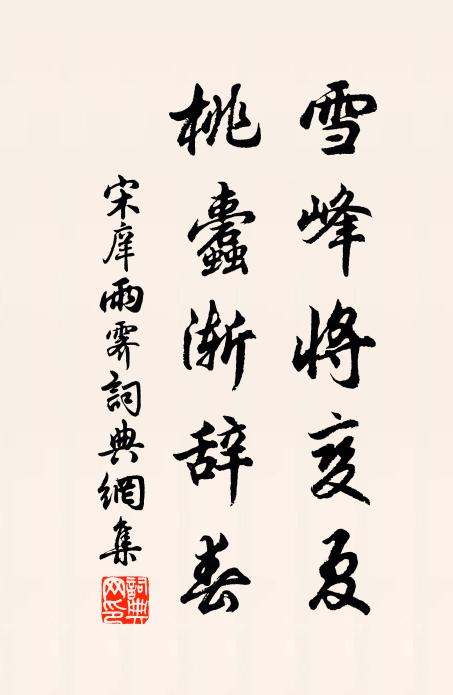 雪峰将变夏
桃蠹渐辞春
宋庠雨霁詞典網集
詞典網印